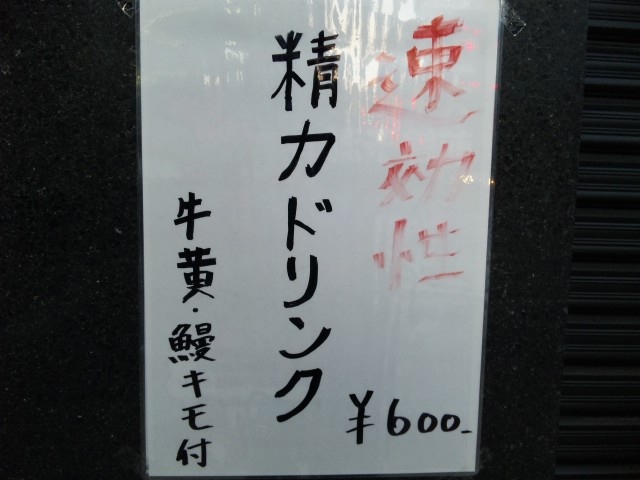 速効性
精力ドリンク
牛黄・鰻キモ付
¥600-